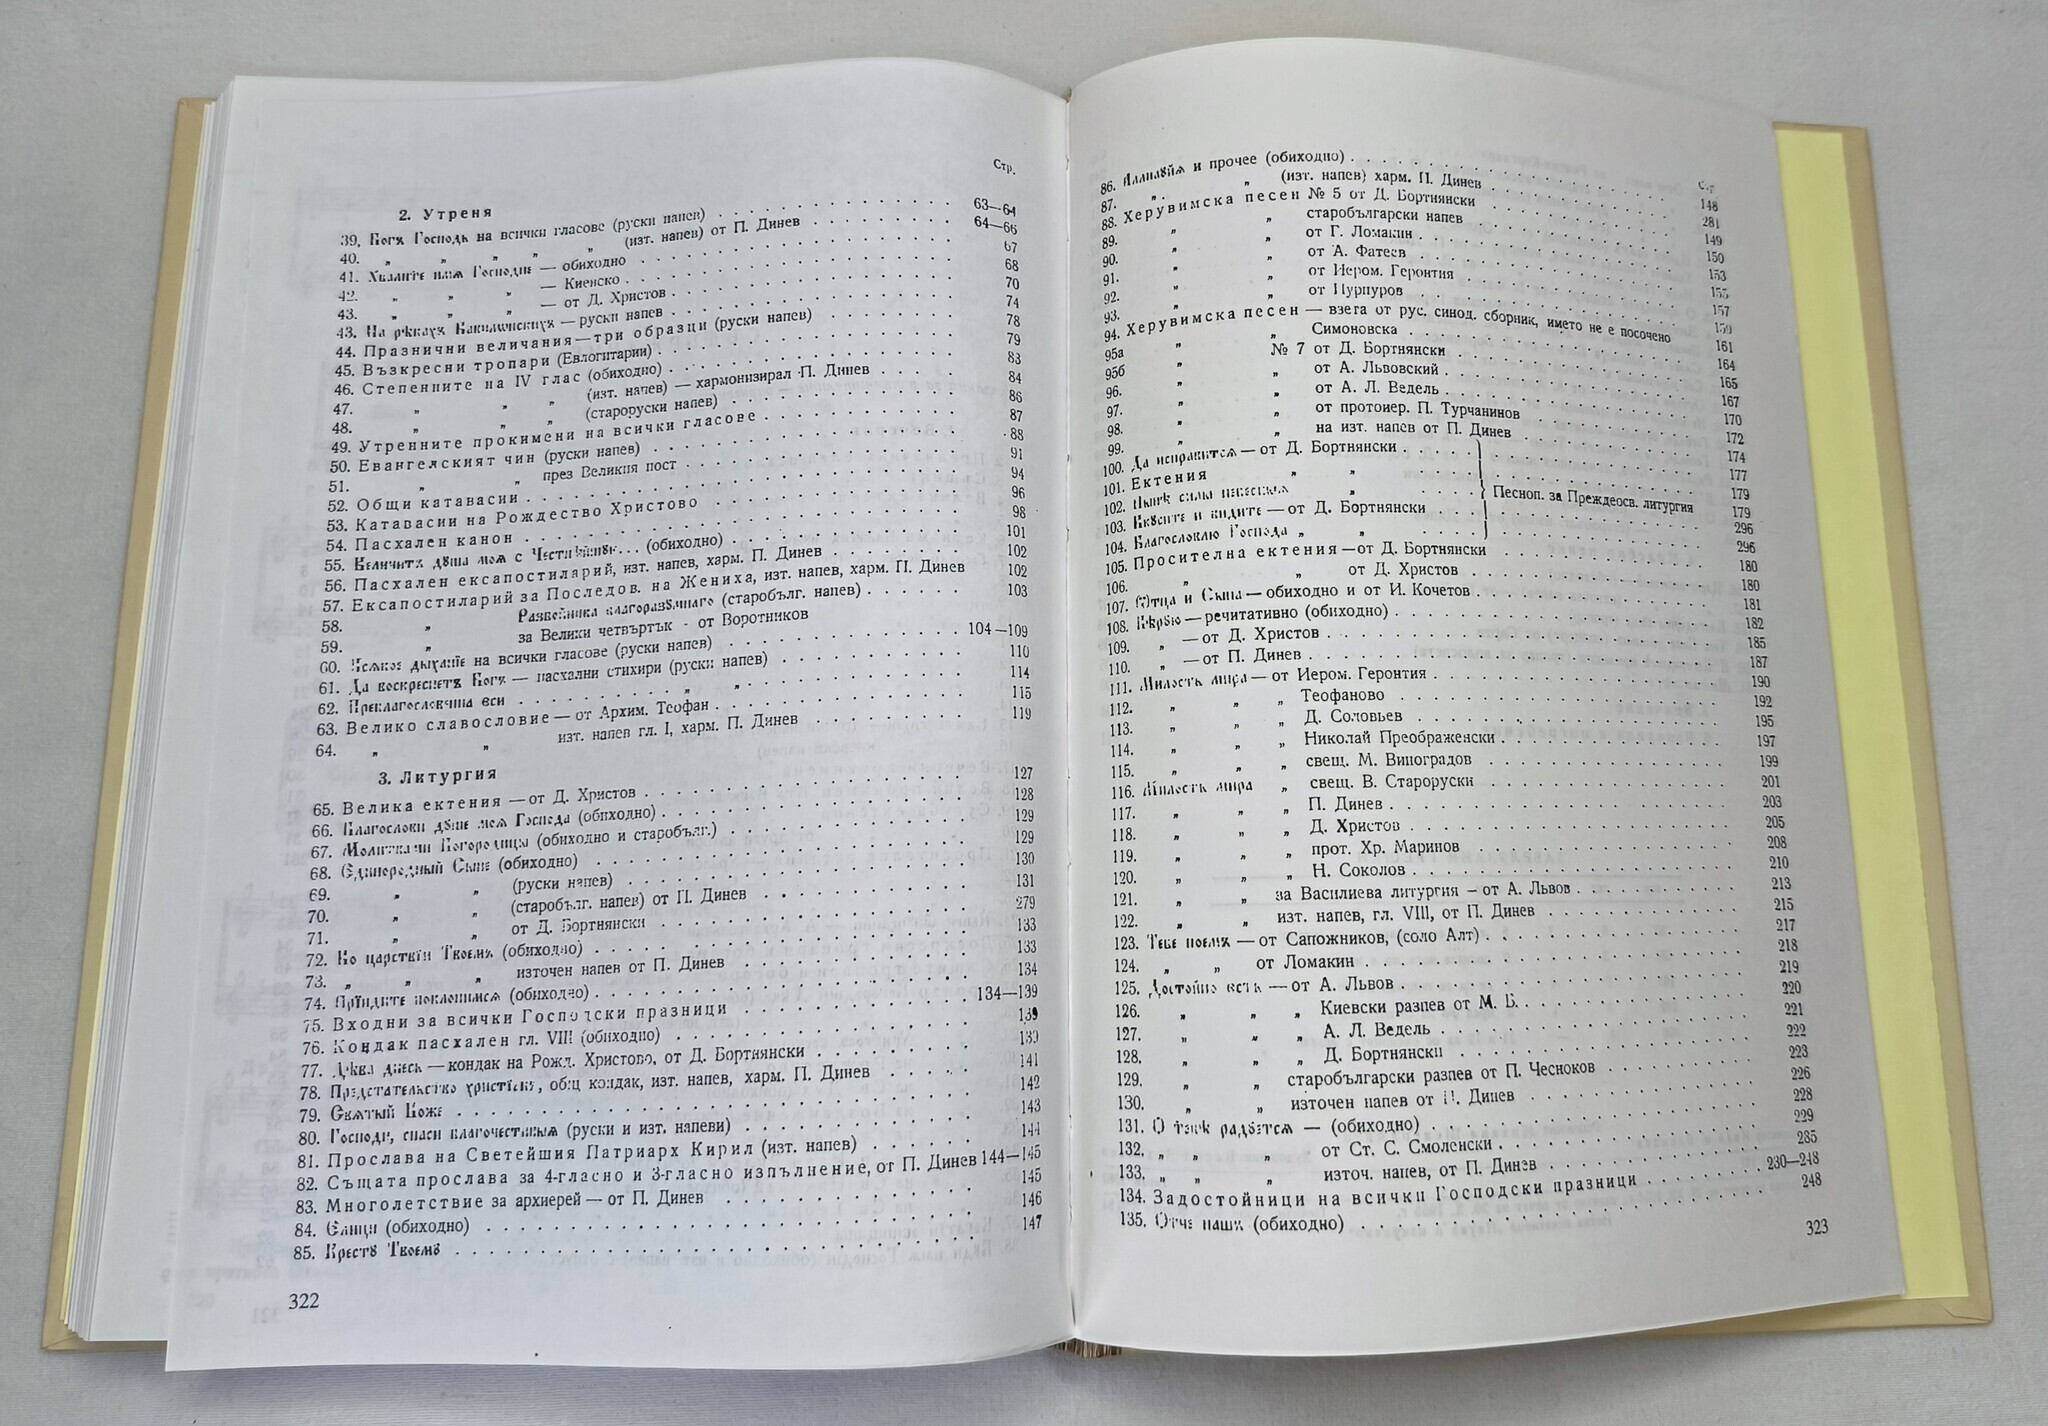 Стр.
2. Утреня
39. Богъ Господь на всички гласове (руски напев) . . . 63—64
40. „ „ „ „ (изт. напев) от П. Динев . . . 64—66
41. Хвалите имя Господне — обиходно . . . 67
42. „ „ „ — Киевско . . . 68
43. „ „ „ — от Д. Христов . . . 70
43. На рѣкахъ Вавилонскихъ — руски напев . . . 74
44. Празнични величания — три образци (руски напев) . . . 78
45. Възкресни тропари (Евлогитарии) . . . 79
46. Степенните на IV глас (обиходно) . . . 83
47. „ „ „ (изт. напев) — хармонизирал П. Динев . . . 84
48. „ „ „ (староруски напев) . . . 86
49. Утренните прокимени на всички гласове . . . 87
50. Евангелският чин (руски напев) . . . 88
51. „ „ през Великия пост . . . 91
52. Общи катавасии . . . 94
53. Катавасии на Рождество Христово . . . 96
54. Пасхален канон . . . 98
55. Величитъ дꙋша моя с Честнѣйшꙋю... (обиходно) . . . 101
56. Пасхален ексапостиларий, изт. напев, харм. П. Динев . . . 102
57. Ексапостиларий за Последов. на Жениха, изт. напев, харм. П. Динев 102
58. „ Разбойника благоразꙋмнаго (старобълг. напев) . . . 103
59. „ за Велики четвъртък - от Воротников
60. Всякое дыханїе на всички гласове (руски напев) . . . 104—109
61. Да воскреснетъ Богъ — пасхални стихири (руски напев) . . . 110
62. Преблагословенна еси . . . „ . . . „ . . . 114
63. Велико славословие — от Архим. Теофан . . . 115
64. „ „ изт. напев гл. I, харм. П. Динев . . . 119
3. Литургия
65. Велика ектения — от Д. Христов . . . 127
66. Благослови дꙋше моя Господа (обиходно) . . . 128
67. Молитвами Богородицы (обиходно и старобълг.) . . . 129
68. Единородный Сыне (обиходно) . . . 129
69. „ „ (руски напев) . . . 130
70. „ „ (старобълг. напев) от П. Динев . . . 131
71. „ „ от Д. Бортнянски . . . 279
72. Во царствїи Твоемъ (обиходно) . . . 133
73. „ „ „ източен напев от П. Динев . . . 133
74. Прїидите поклонимся (обиходно) . . . 134
75. Входни за всички Господски празници . . . 134—139
76. Кондак пасхален гл. VIII (обиходно) . . . 139
77. Дѣва днесь — кондак на Рожд. Христово, от Д. Бортнянски . . . 139
78. Предстательство христїанъ, общ кондак, изт. напев, харм. П. Динев . . . 141
79. Святый Боже . . . 142
80. Господи, спаси благочестивыя (руски и изт. напеви) . . . 143
81. Прослава на Светейшия Патриарх Кирил (изт. напев) . . . 144
82. Същата прослава за 4-гласно и 3-гласно изпълнение, от П. Динев 144—145
83. Многолетствие за архиерей — от П. Динев . . . 145
84. Елици (обиходно) . . . 146
85. Крестꙋ Твоемꙋ . . . 147
322
Стр
86. Аллилꙋйя и прочее (обиходно) . . . 148
87. „ „ (изт. напев) харм. П. Динев . . . 281
88. Херувимска песен № 5 от Д. Бортнянски . . . 149
89. „ „ старобългарски напев . . . 150
90. „ „ от Г. Ломакин . . . 153
91. „ „ от А. Фатеев . . . 155
92. „ „ от Иером. Геронтия . . . 157
93. „ „ от Пурпуров . . . 159
94. Херувимска песен — взета от рус. синод. сборник, името не е посочено 161
95а „ „ Симоновска . . . 164
95б „ № 7 от Д. Бортнянски . . . 165
96. „ „ от А. Львовский . . . 167
97. „ „ от А. Л. Ведель . . . 170
98. „ „ от протоиер. П. Турчанинов . . . 172
99. „ „ на изт. напев от П. Динев . . . 174
100. Да исправится — от Д. Бортнянски . . . 177
101. Ектения „ „ . . . 179
102. Нынѣ силы небесныя „ . . . Песноп. за Преждеосв. литургия 179
103. Вкꙋсите и видите — от Д. Бортнянски . . . 296
104. Благословлю Господа „ „ . . . 296
105. Просителна ектения — от Д. Бортнянски . . . 180
106. „ „ от Д. Христов . . . 180
107. Отца и Сына — обиходно и от И. Кочетов . . . 181
108. Вѣрꙋю — речитативно (обиходно) . . . 182
109. „ — от Д. Христов . . . 185
110. „ — от П. Динев . . . 187
111. Милость мира — от Иером. Геронтия . . . 190
112. „ „ „ Теофаново . . . 192
113. „ „ „ Д. Соловьев . . . 195
114. „ „ „ Николай Преображенски . . . 197
115. „ „ „ свещ. М. Виноградов . . . 199
116. Милость мира „ свещ. В. Староруски . . . 201
117. „ „ „ П. Динев . . . 203
118. „ „ „ Д. Христов . . . 205
119. „ „ „ прот. Хр. Маринов . . . 208
120. „ „ „ Н. Соколов . . . 210
121. „ „ за Василиева литургия – от А. Львов . . . 213
122. „ „ изт. напев, гл. VIII, от П. Динев . . . 215
123. Тебе поемъ — от Сапожников, (соло Алт) . . . 217
124. „ „ от Ломакин . . . 218
125. Достойно есть — от А. Львов . . . 219
126. „ „ „ Киевски разпев от М. Б. . . . 220
127. „ „ „ А. Л. Ведель . . . 221
128. „ „ „ Д. Бортнянски . . . 222
129. „ „ старобългарски разпев от П. Чесноков . . . 223
130. „ „ източен напев от П. Динев . . . 226
131. О тебѣ радꙋется — (обиходно) . . . 228
132. „ „ „ от Ст. С. Смоленски . . . 229
133. „ „ „ източ. напев, от П. Динев . . . 285
134. Задостойници на всички Господски празници . . . 230—248
135. Отче нашъ (обиходно) . . . 248
323